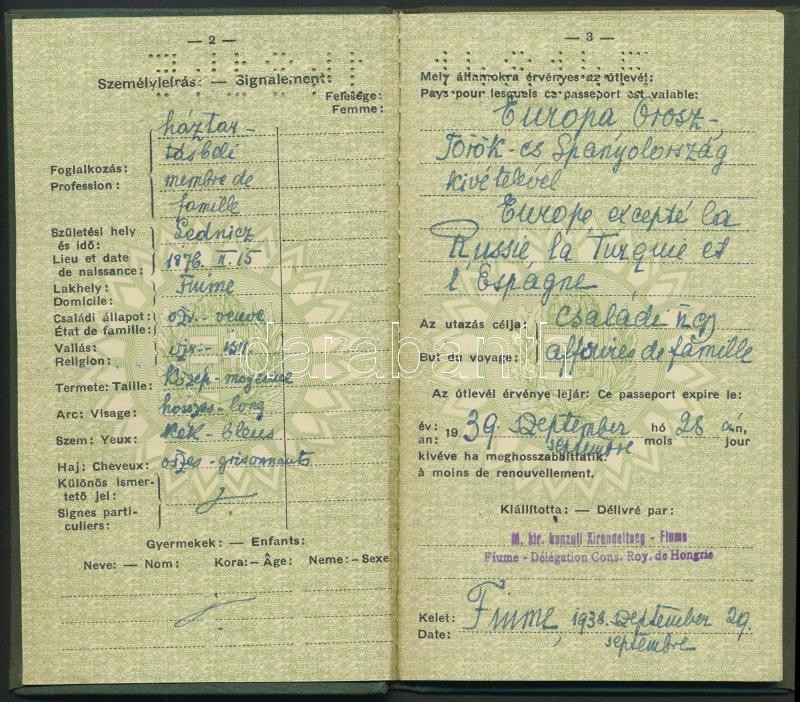 — 2 —
Személyleírás: — Signalement:
Felesége:
Femme:
Foglalkozás:
Profession:
háztar-
tásbeli
membre de
famille
Születési hely
és idő:
Lieu et date
de naissance:
Lednicz
1876. II. 15
Lakhely:
Domicile:
Fiume
Családi állapot:
État de famille:
özv. - veuve
Vallás:
Religion:
izr. - isr.
Termete: Taille:
közép - moyenne
Arc: Visage:
hosszas - long
Szem: Yeux:
kék - bleus
Haj: Cheveux:
őszes - grisonnants
Különös ismer-
tető jel:
Signes parti-
culiers:
Gyermekek: — Enfants:
Neve: — Nom: Kora: — Âge: Neme: — Sexe
— 3 —
Mely államokra érvényes az útlevél:
Pays pour lesquels ce passeport est valable:
Europa Orosz-
Török- és Spanyolország
kivételével
Europe excepté la
Russie, la Turquie et
l'Espagne
Az utazás célja:
But du voyage:
családi ügy
affaires de famille
Az útlevél érvénye lejár: Ce passeport expire le:
év: an: 1939. september septembre hó mois 28 án, jour
kivéve ha meghosszabbíttatik.
à moins de renouvellement.
Kiállította: — Délivré par:
M. kir. konzuli Kirendeltség - Fiume
Fiume - Délégation Cons. Roy. de Hongrie
Kelet:
Date:
Fiume, 1938. september 29.
septembre
darabanth